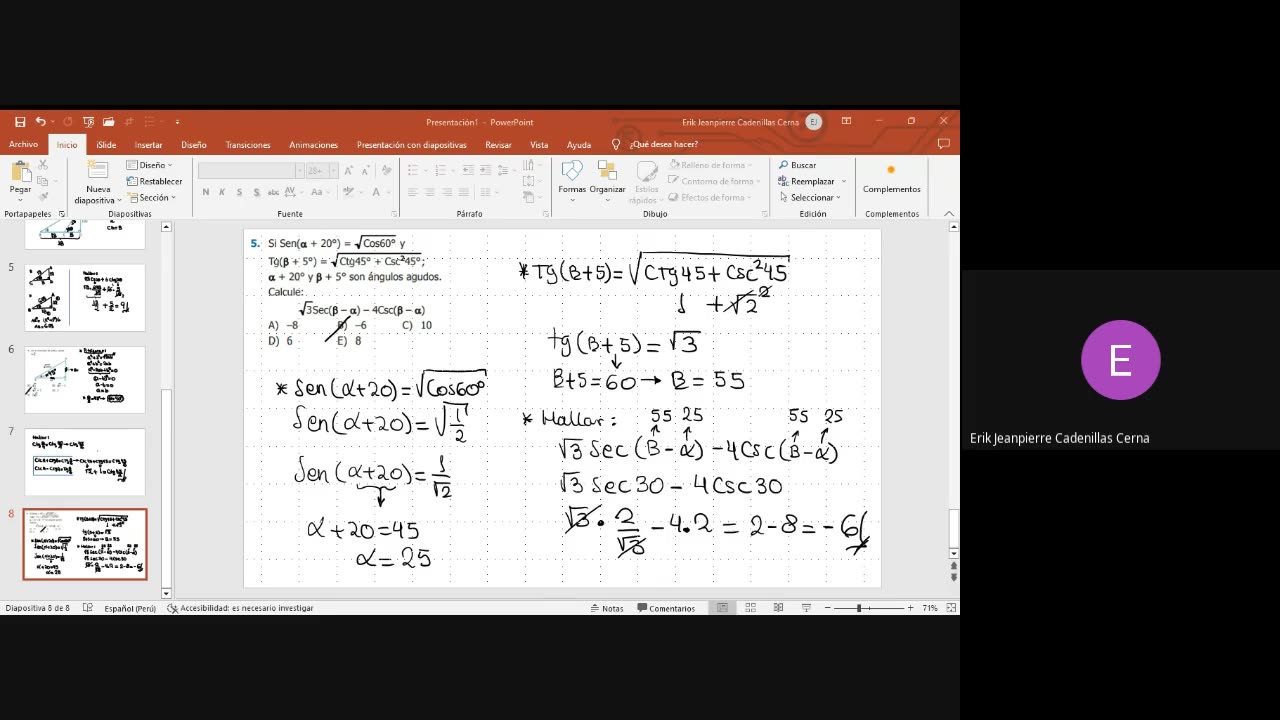 Presentación1 - PowerPoint
Erik Jeanpierre Cadenillas Cerna
EJ
Archivo Inicio iSlide Insertar Diseño Transiciones Animaciones Presentación con diapositivas Revisar Vista Ayuda ¿Qué desea hacer?
Pegar
Nueva diapositiva
Diseño
Restablecer
Sección
28
N K S S abc AV Aa A
Formas
Organizar
Estilos rápidos
Relleno de forma
Contorno de forma
Efectos de forma
Buscar
Reemplazar
Seleccionar
Complementos
Portapapeles Diapositivas Fuente Párrafo Dibujo Edición Complementos
5
6
7
8
5. Si Sen(α + 20°) = √Cos60° y
Tg(β + 5°) = √Ctg45° + Csc²45°;
α + 20° y β + 5° son ángulos agudos.
Calcule:
√3Sec(β – α) – 4Csc(β – α)
A) –8 B) –6 C) 10
D) 6 E) 8
* Sen(α+20)=√Cos60°
Sen(α+20)=√1/2
Sen(α+20)=1/√2
α+20=45
α=25
* Tg(B+5)=√Ctg45+Csc²45
1 + √2²
tg(B+5)=√3
B+5=60→B=55
* Hallar: 55 25 55 25
√3 Sec(B-α)-4Csc(B-α)
√3 Sec30-4Csc30
√3·2/√3-4·2=2-8=-6
Diapositiva 8 de 8 Español (Perú) Accesibilidad: es necesario investigar Notas Comentarios 71%
E
Erik Jeanpierre Cadenillas Cerna